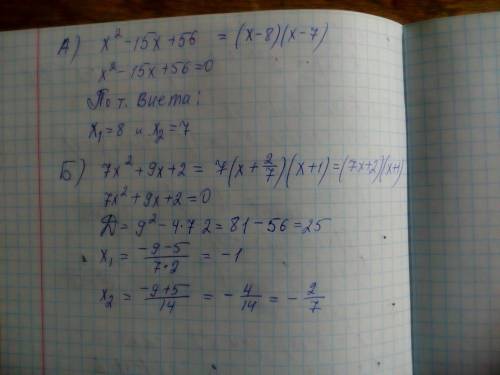 А) x² - 15x + 56 = (x-8)(x-7)
x² - 15x + 56 = 0
По т. Виета:
x₁ = 8 и x₂ = 7
Б) 7x² + 9x + 2 = 7(x + 2/7)(x + 1) = (7x+2)(x+1)
7x² + 9x + 2 = 0
Д = 9² - 4·7·2 = 81 - 56 = 25
x₁ = (-9-5)/(7·2) = -1
x₂ = (-9+5)/14 = -4/14 = -2/7